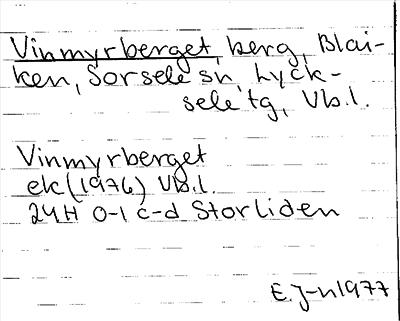 Vinmyrberget, berg, Blai-
ken, Sorsele sn, Lyck-
sele tg, Vb.l.
Vinmyrberget
ek(1976) Vb.l.
24H 0-1 c-d Storliden
E.J-n1977